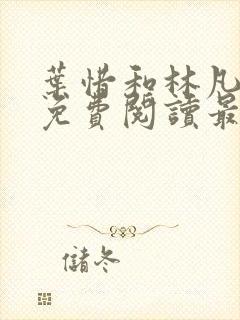 葉惜和林凡
免費閱讀最
儲冬